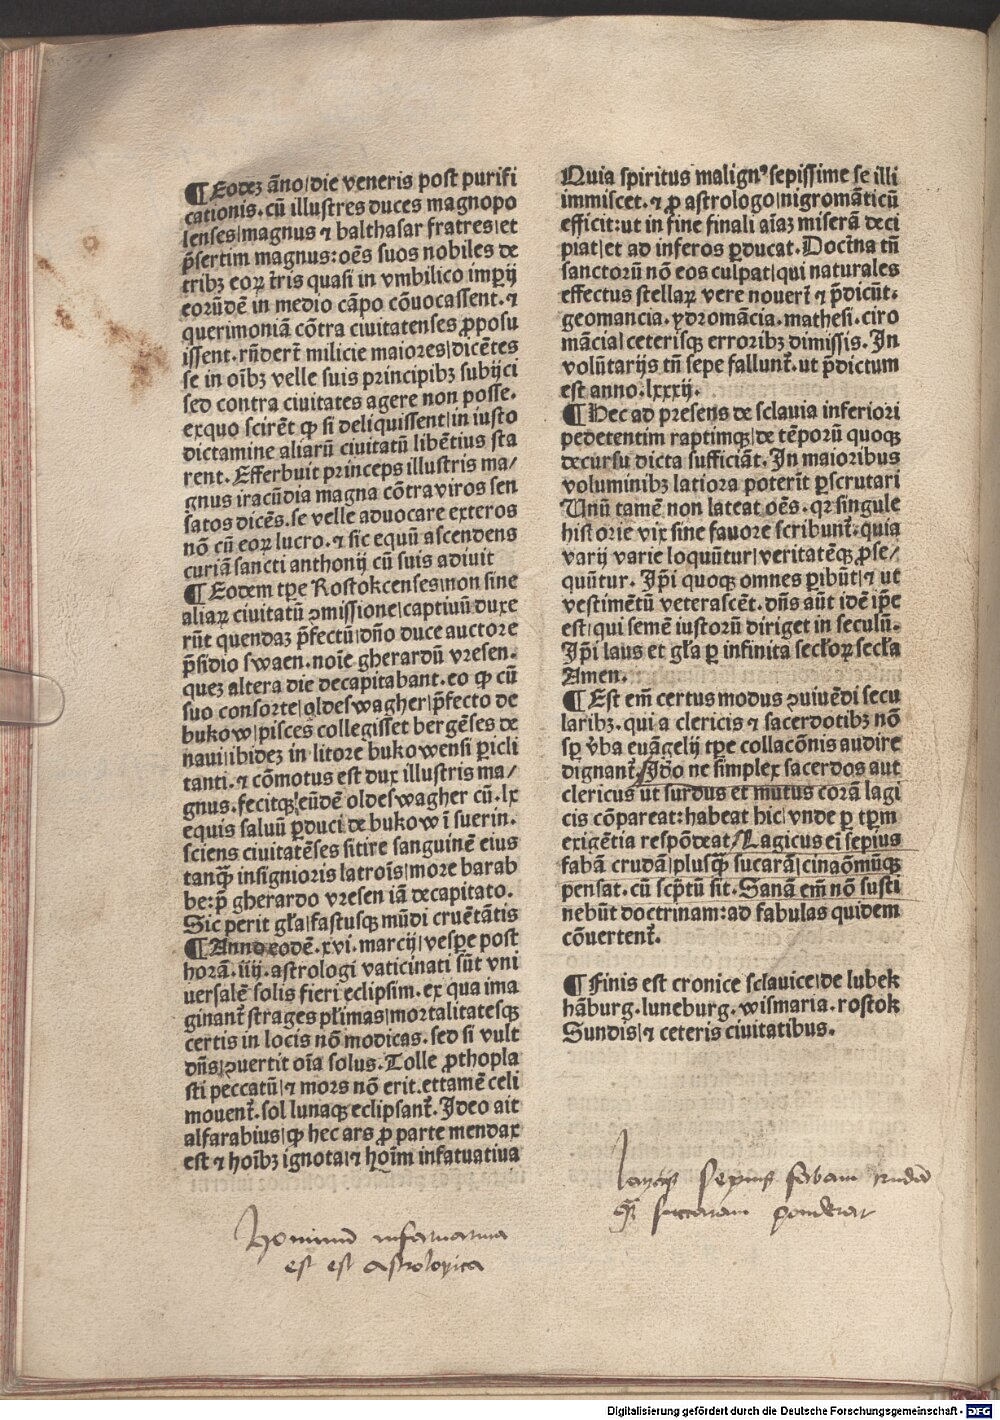 ¶ Eodeꝫ āno/die veneris post purifi
cationis. cū illustres duces magnopo
lenses/magnus ⁊ balthasar fratres/et
p̄sertim magnus: oēs suos nobiles de
tribꝫ eoꝝ tris quasi in vmbilico imperij
eorūdē in medio cāpo cōuocassent. ⁊
querimoniā cōtra ciuitatenses ꝓposu
issent. rn̄dert̄ milicie maiores/dicētes
se in oībꝫ velle suis principibꝫ subijci
sed contra ciuitates agere non posse.
exquo scirēt ꝙ si deliquissent/in iusto
dictamine aliarū ciuitatū libētius sta
rent. Efferbuit princeps illustris ma/
gnus iracūdia magna cōtra viros sen
satos dicēs. se velle aduocare exteros
nō cū eoꝝ lucro. ⁊ sic equū ascendens
curiā sancti anthonij cū suis adiuit
¶ Eodem tꝑe Rostokcenses/non sine
aliaꝝ ciuitatū ꝯmissione/captiuū duxe
rūt quendaꝫ p̄fectū/dn̄o duce auctore
p̄sidio swaen. noīe gherardū vresen.
queꝫ altera die decapitabant. eo ꝙ cū
suo consorte/oldeswagher/p̄fecto de
bukow/pisces collegisset bergēses de
naui/ibideꝫ in litore bukowensi ꝑicli
tanti. ⁊ cōmotus est dux illustris ma/
gnus. fecitqꝫ eūdē oldeswagher cū. lx
equis saluū ꝑduci de bukow ī suerin.
sciens ciuitatēses sitire sanguinē eius
tanꝙ̄ insignioris latroīs/more barab
be: p̄ gherardo vresen iā decapitato.
Sic perit gl̄a/fastusqꝫ mūdi cruētātis
¶ Anno eodē. xvi. marcij/vesꝑe post
horā. iiij. astrologi vaticinati sūt vni
uersalē solis fieri eclipsim. ex qua ima
ginant̄ strages pl̄imas/mortalitatesqꝫ
certis in locis nō modicas. sed si vult
dn̄s/ꝯuertit oīa solus. Tolle ꝓthopla
sti peccatū/⁊ mors nō erit. ettamē celi
mouent̄. sol lunaqꝫ eclipsant̄. Ideo ait
alfarabius/ꝙ hec ars ꝓ parte mendax
est ⁊ hoībꝫ ignota/⁊ hoīm infatuatiua
Hominum infatuatiua
est est astrologica
Quia spiritus malignꝰ sepissime se illi
immiscet. ⁊ ꝓ astrologo/nigromāticū
efficit: ut in fine finali aīaꝫ miserā deci
piat/et ad inferos ꝑducat. Doctⁱna tn̄
sanctorū nō eos culpat/qui naturales
effectus stellaꝝ vere nouert̄ ⁊ p̄dicūt.
geomancia. ydromācia. mathesi. ciro
mācia/ceterisqꝫ erroribꝫ dimissis. In
volūtarijs tn̄ sepe fallunt̄. ut p̄dictum
est anno. lxxxij.
¶ Hec ad presens de sclauia inferiori
pedetentim raptimqꝫ/de tēporū quoqꝫ
decursu dicta sufficiāt. In maioribus
voluminibꝫ latiora poterit ꝑscrutari
Unū tamē non lateat oēs. qꝛ singule
historie vix sine fauore scribunt̄. quia
varij varie loquūtur/veritatēqꝫ ꝓse/
quūtur. Ip̄i quoqꝫ omnes ꝑibūt/⁊ ut
vestimētū veterascēt. dn̄s aūt idē ip̄e
est/qui semē iustorū diriget in seculū.
Ip̄i laus et gl̄a ꝑ infinita secl̄oꝝ secl̄a
Amen.
¶ Est em̄ certus modus ꝯuiuēdi secu
laribꝫ. qui a clericis ⁊ sacerdotibꝫ nō
sꝑ v̄ba euāgelij tꝑe collacōnis audire
dignant̄. Ido̅ ne simplex sacerdos aut
clericus ut surdus et mutus corā lagi
cis cōpareat: habeat hic/vnde ꝑ tp̄m
exigētia respōdeat/Lagicus ei̅ sepius
fabā crudā/plusꝙ̄ sucarā/cinaōmūqꝫ
pensat. cū scp̄tū sit. Sanā em̄ nō susti
nebūt doctrinam: ad fabulas quidem
cōuertent̄.
¶ Finis est cronice sclauice/de lubek
hāburg. luneburg. wismaria. rostok
Sundis/⁊ ceteris ciuitatibus.
Laycus sepius fabam crudam
ꝙ̄ succaram ponderat
Digitalisierung gefördert durch die Deutsche Forschungsgemeinschaft - DFG